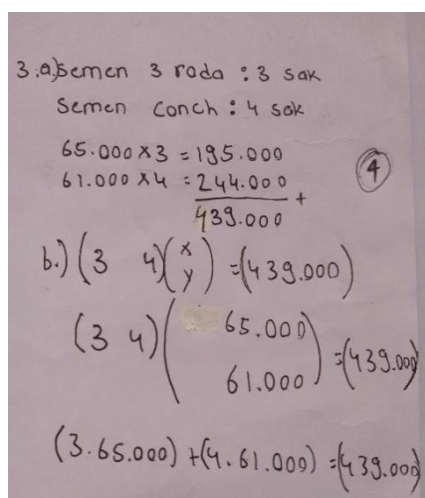 3.a) Semen 3 roda : 3 sak
Semen Conch : 4 sak
65.000 x 3 = 195.000
61.000 x 4 = 244.000 +
439.000
4
b.) (3 4) (x y) = (439.000)
(3 4) (65.000 61.000) = (439.000)
(3.65.000) + (4.61.000) = (439.000)